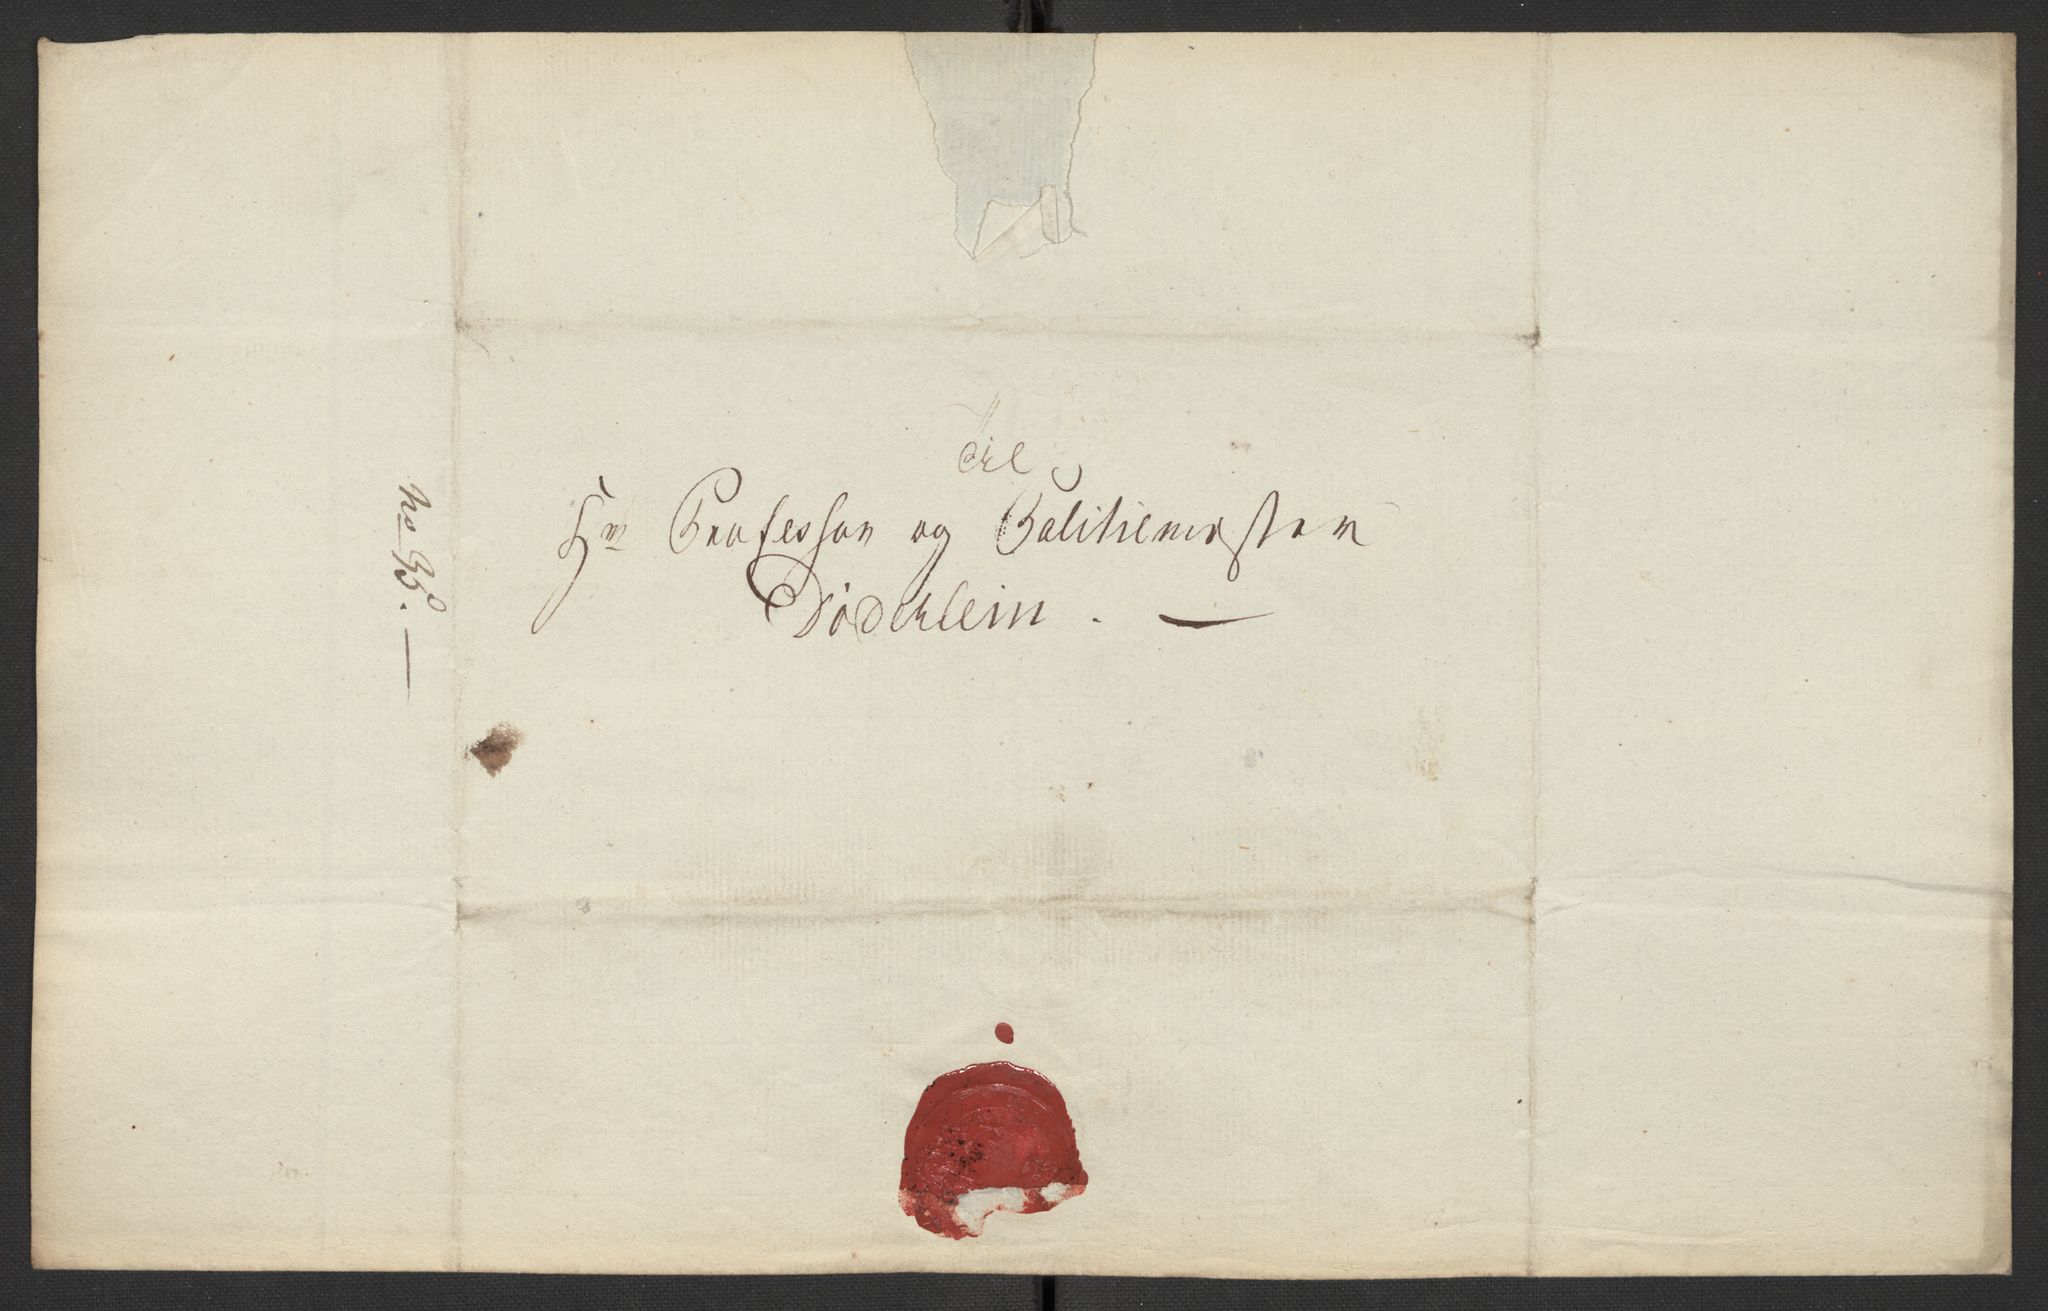 Til
Hr Professor og Politiemester
Döderlein. —
No 95. —